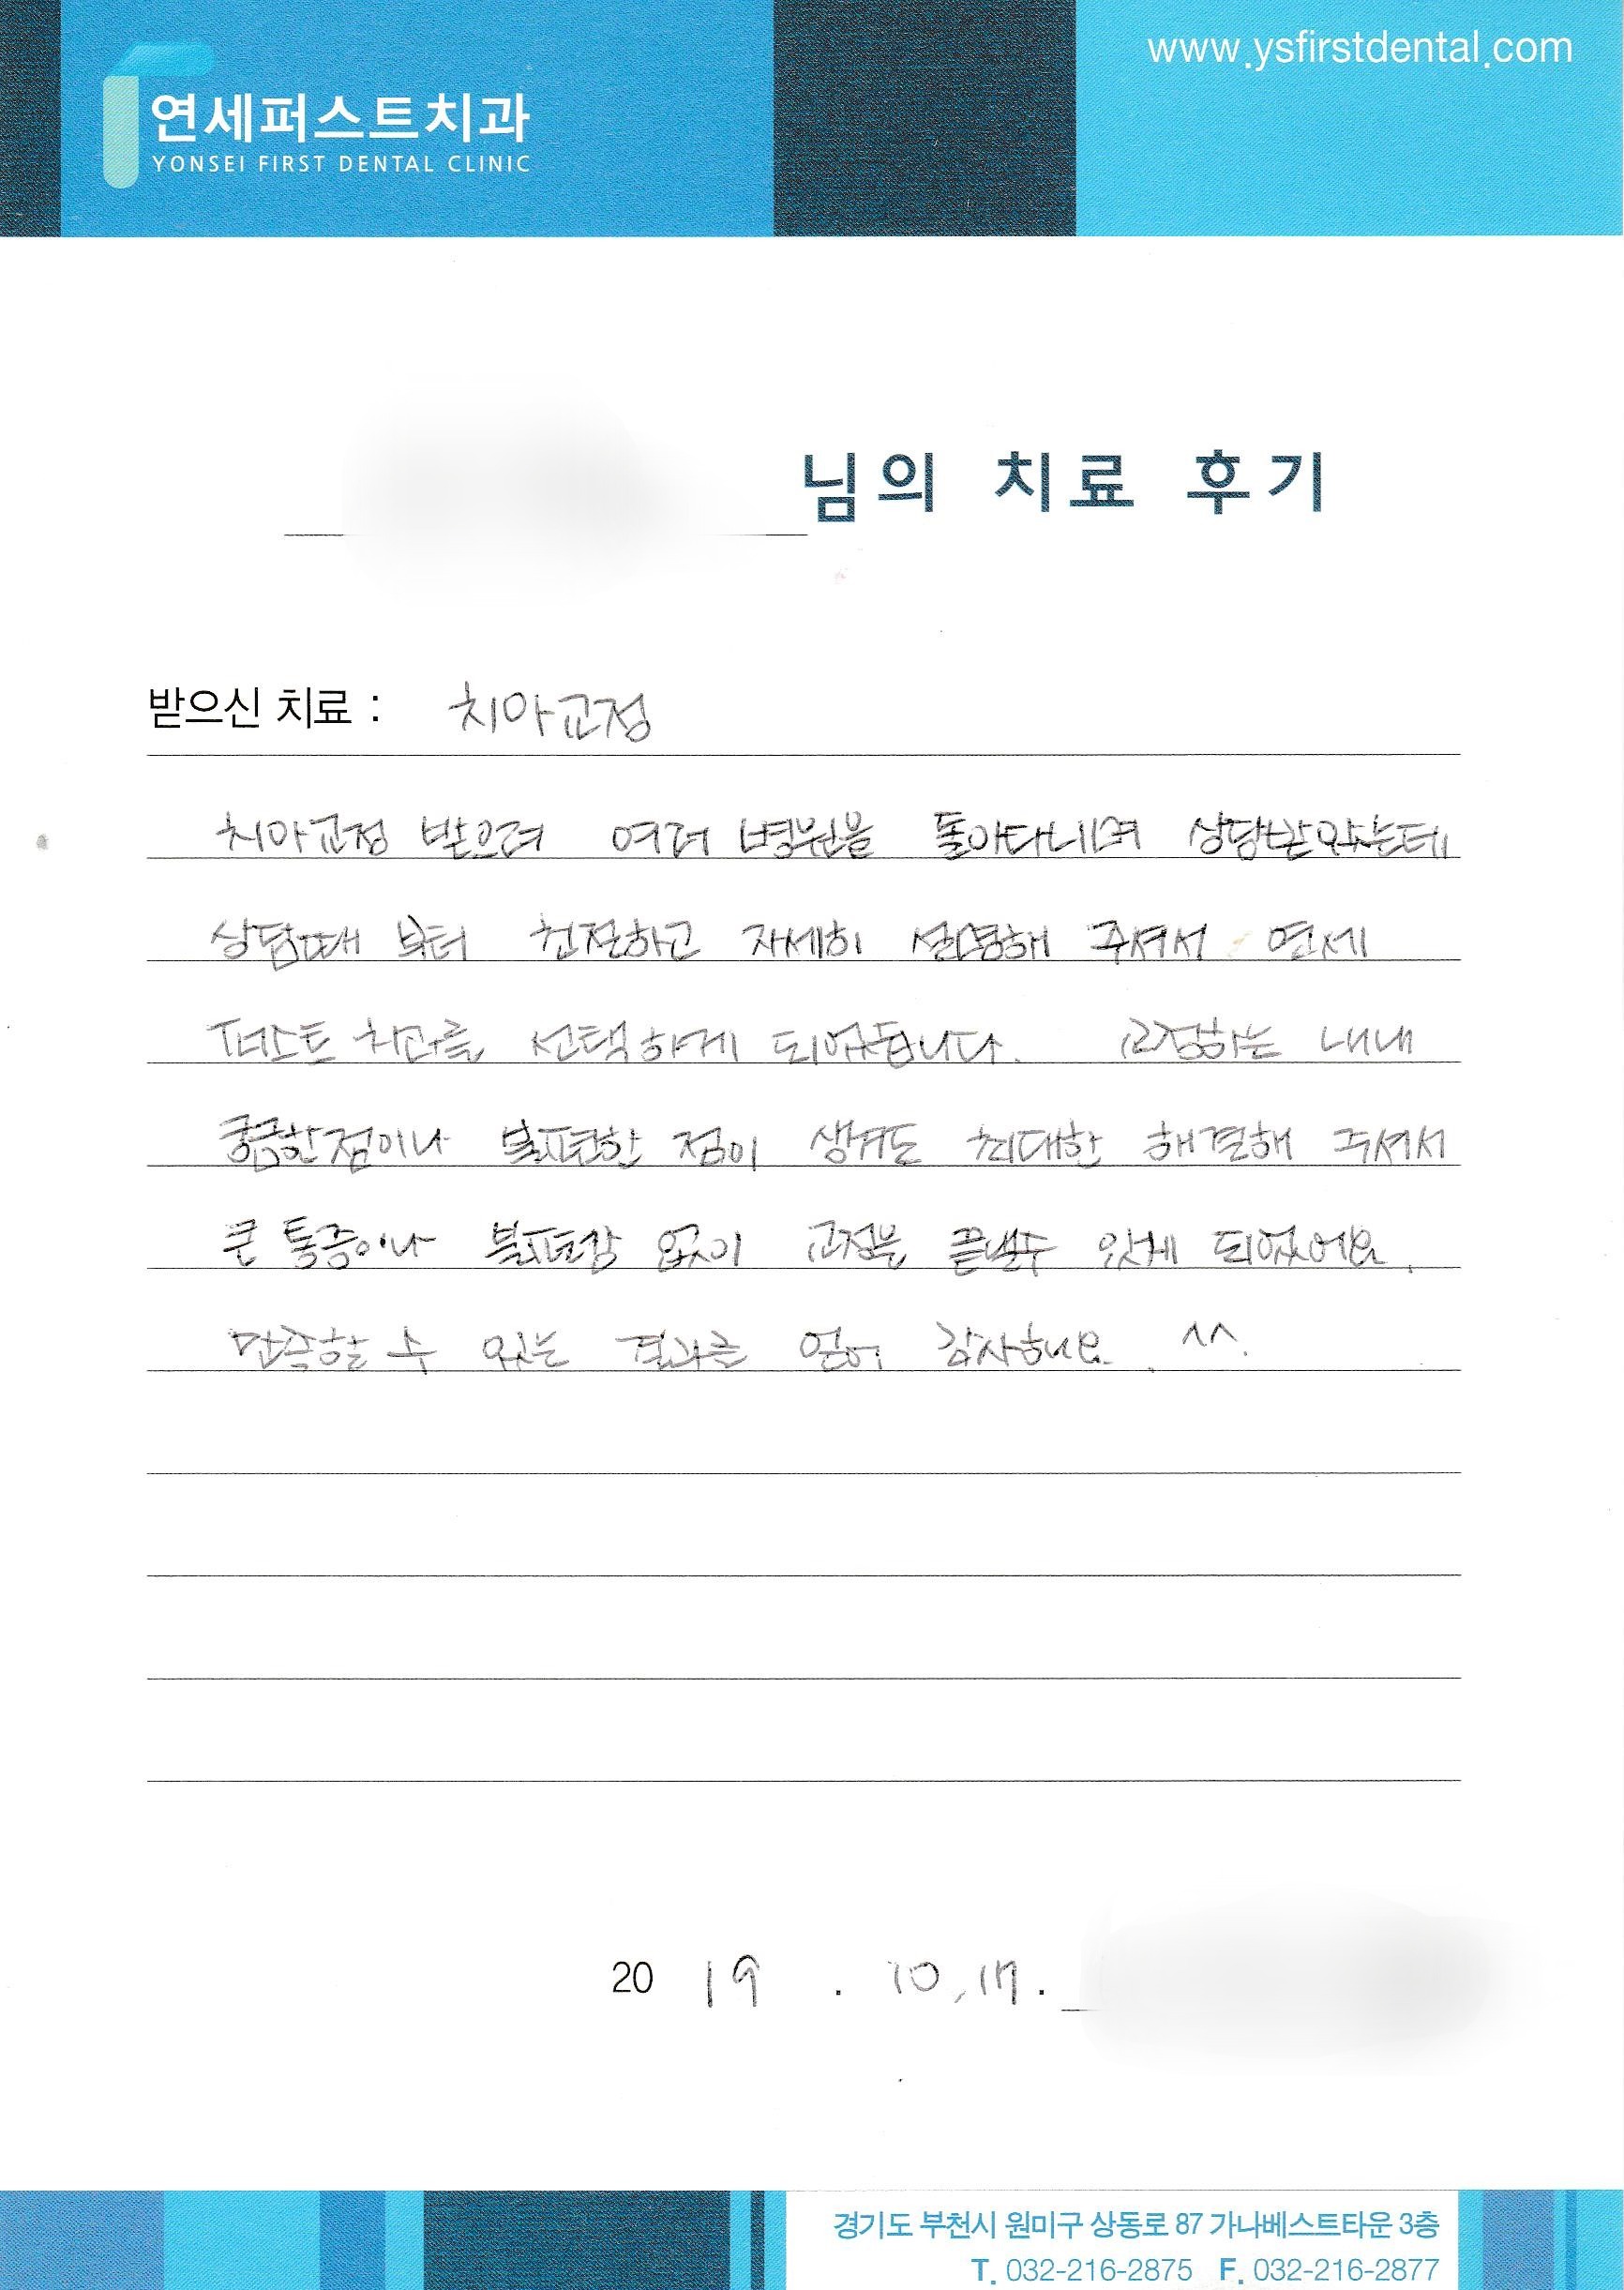 www.ysfirstdental.com
연세퍼스트치과
YONSEI FIRST DENTAL CLINIC
님의 치료 후기
받으신 치료 : 치아교정
치아교정 받으려 여러 병원을 돌아다니며 상담받았는데
상담때 부터 친절하고 자세히 설명해 주셔서 연세
퍼스트 치과를 선택하게 되었습니다. 교정하는 내내
궁금한점이나 불편한 점이 생겨도 최대한 해결해 주셔서
큰 통증이나 불편감 없이 교정을 끝낼수 있게 되었어요.
만족할 수 있는 결과를 얻어 감사해요. ^^.
20 19 . 10, 17.
경기도 부천시 원미구 상동로 87 가나베스트타운 3층
T. 032-216-2875 F. 032-216-2877